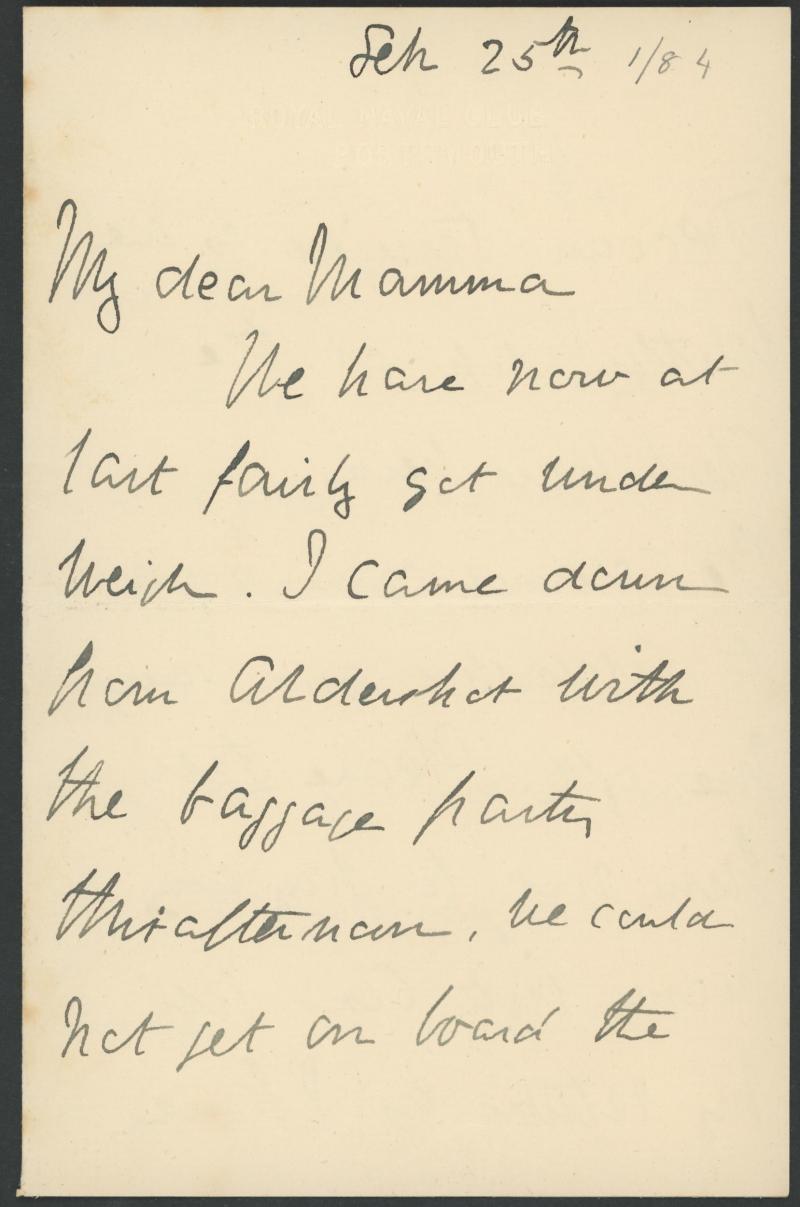 Feb 25th 1/84
ROYAL NAVAL CLUB
PORTSMOUTH
My dear Mamma
We have now at
last fairly got under
weigh. I came down
from Aldershot with
the baggage party
this afternoon, we could
not get on board the